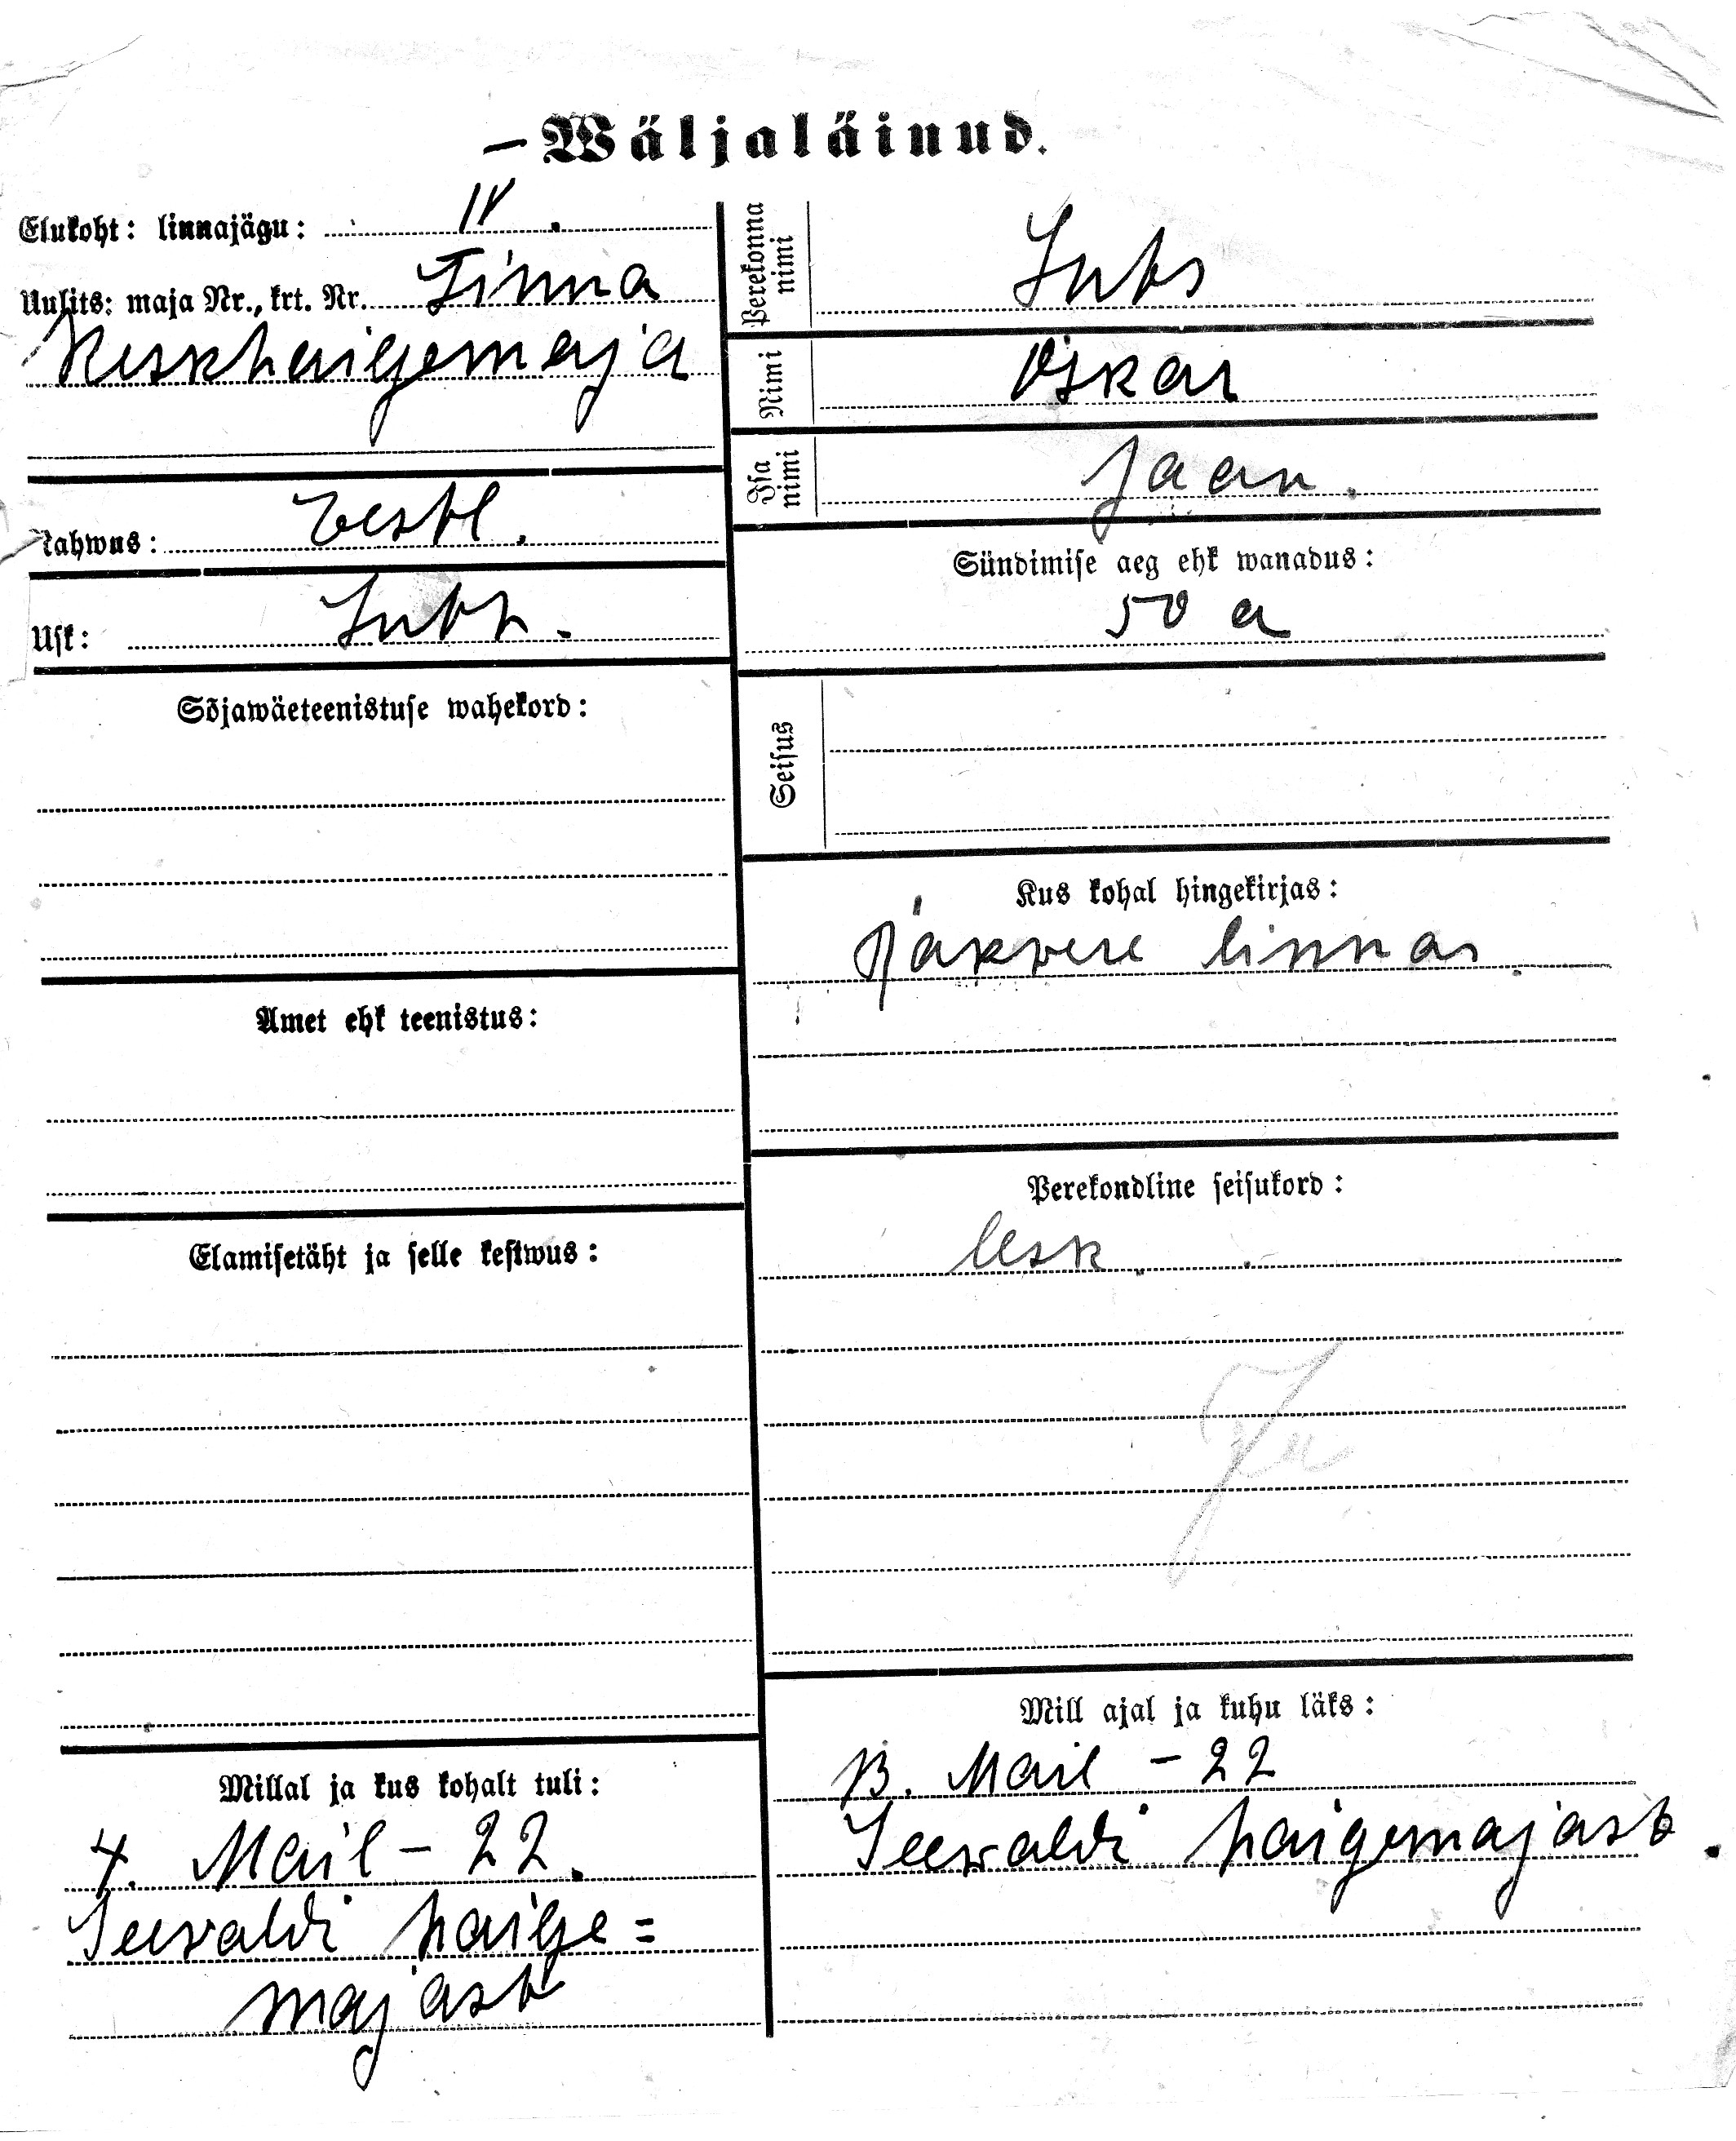 Wäljaläinud.
Elukoht: linnajägu: IV.
Uulits: maja Nr., krt. Nr. Linna
Keskhaigemaja
Rahwus: Eestl.
Usk: Luth.
Sõjawäeteenistuse wahekord:
Amet ehk teenistus:
Elamisetäht ja selle kestwus:
Millal ja kus kohalt tuli:
4. Mail - 22.
Seevaldi haige=
majast
Perekonna
nimi
Nimi Oskar
Isa
nimi Jaan.
Sündimise aeg ehk wanadus:
50 a
Seisus
Kus kohal hingekirjas:
Rakvere linnas.
Perekondline seisukord:
lesk.
Mill ajal ja kuhu läks:
13. Mail - 22
Seevaldi haigemajast.